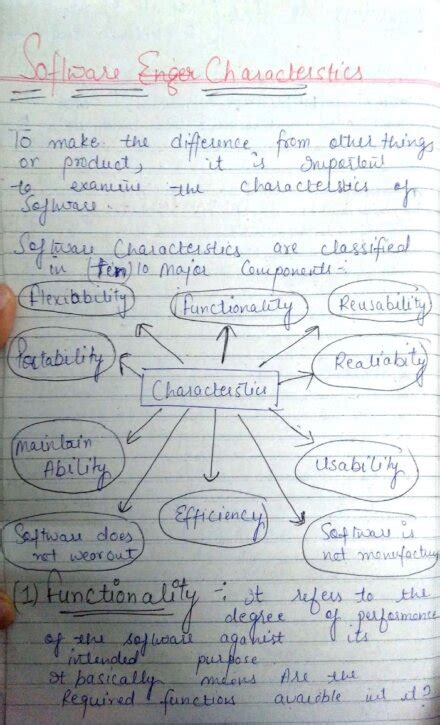 Software Enger Characteristics
To make the difference from other things
or product, it is Important
to examine the characteristics of
Software.
Software Characteristics are classified
in (Ten) 10 Major Components :-
Flexibability
Functionality
Reusability
Portability
Realiabity
Characteristics
Maintain
Ability
Usability
Efficiency
Software does
not wearout
Software is
not manufactury
(1) Functionality :- it refers to the
degree of performance
of the software against its
intended purpose.
It basically means Are the
Required functions avaible int it?